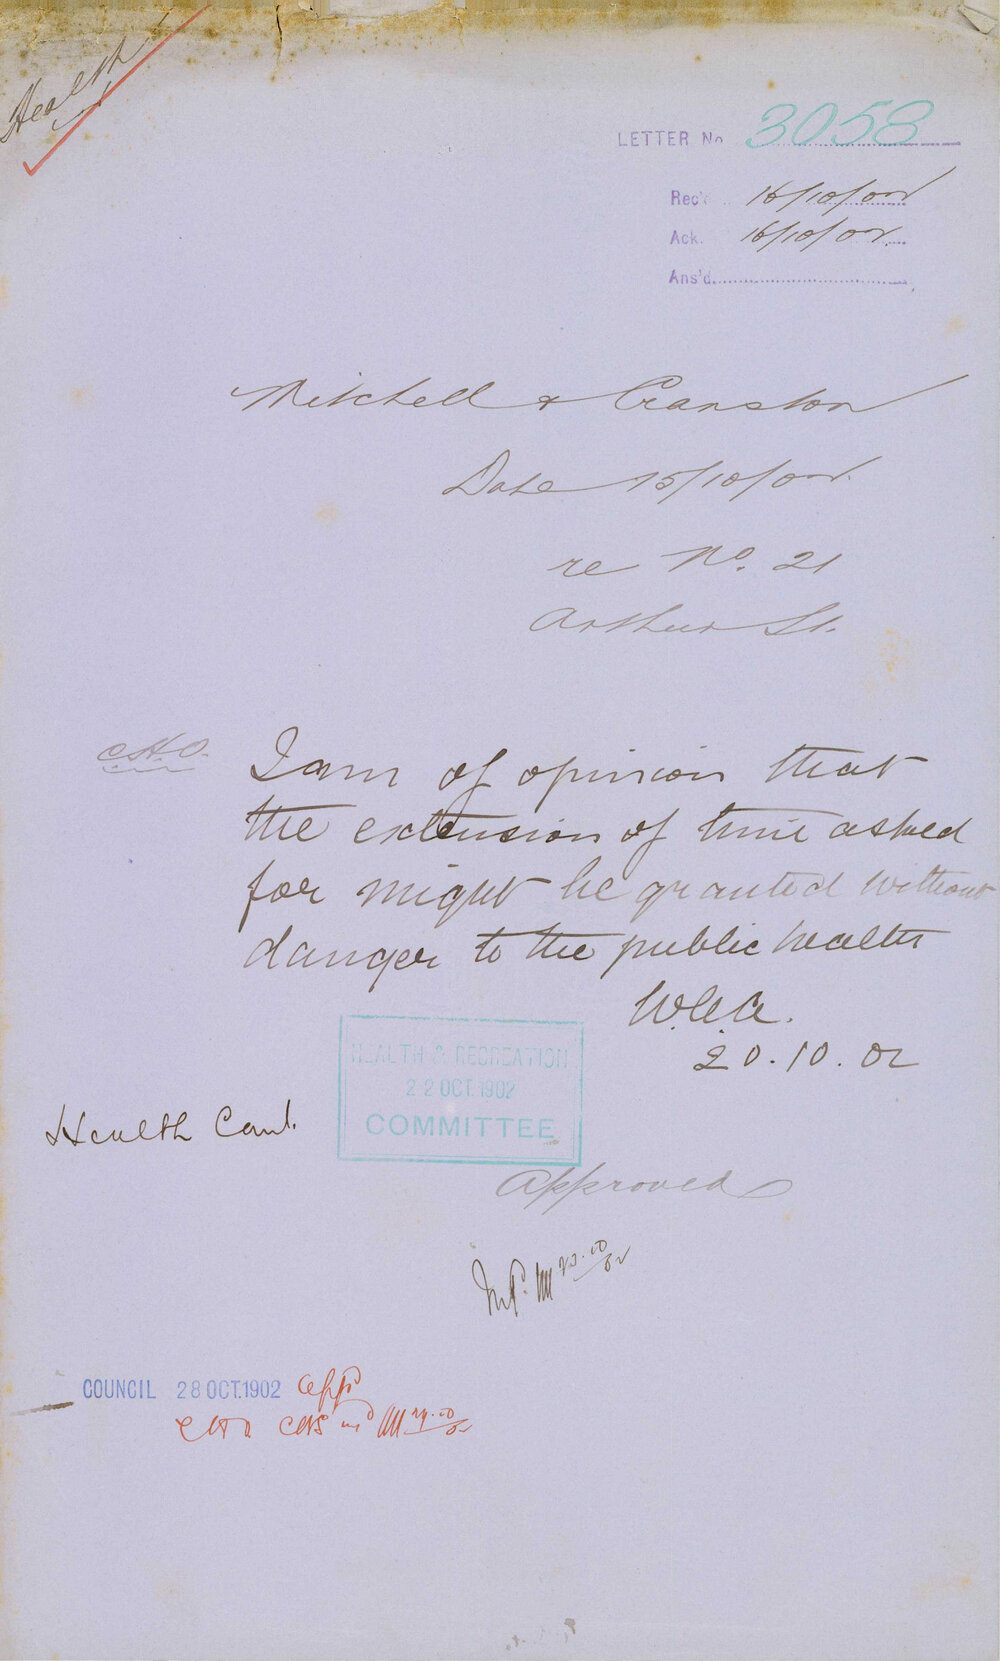 Health
LETTER No 3058
Rec'd 16/10/02
Ack. 16/10/02
Ans'd.
Mitchell & Cranston
Date 15/10/02.
re No. 21
Arthur St.
C.H.O. I am of opinion that
the extension of time asked
for might be granted without
danger to the public health
20.10.02
HEALTH & RECREATION
22 OCT. 1902
COMMITTEE
Health Comt.
Approved
COUNCIL 28 OCT. 1902 appd
CHO